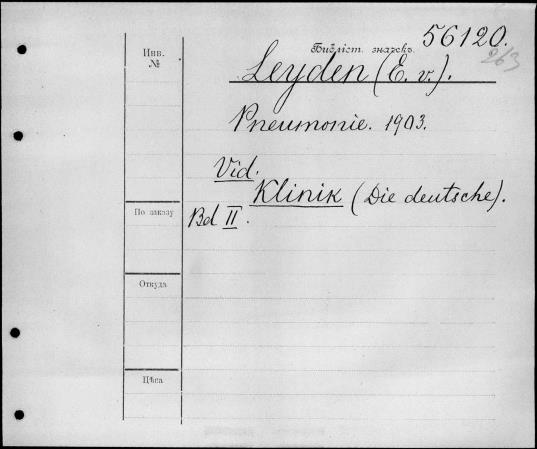 Инв.
№
Библіст. значекъ 56120.
263
Leyden (E. v.).
Pneumonie. 1903.
Vid.
Klinik (Die deutsche).
По заказу
Bd II.
Откуда
Цѣна